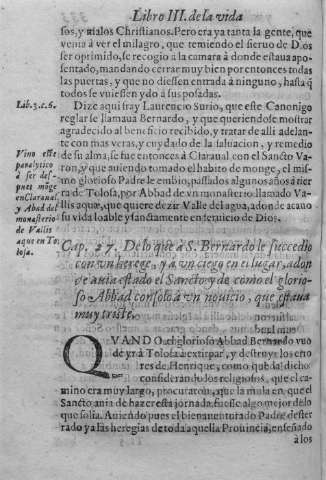 Libro III. de la vida
sos, y malos Christianos. Pero era ya tanta la gente, que
venia à ver el milagro, que temiendo el sieruo de Dios
ser oprimido, se recogio a la camara à donde estaua apo-
sentado, mandando cerrar muy bien por entonces todas
las puertas, y que no diessen entrada à ninguno, hasta q̃
todos se vuiessen ydo à sus posadas.
Lib. 3. c. 6.
Dize aqui fray Laurencio Surio, que este Canonigo
reglar se llamaua Bernardo, y que queriendose mostrar
agradecido al beneficio recibido, y tratar de alli adelan-
te con mas veras, y cuydado de la saluacion, y remedio
de su alma, se fue entonces à Claraual con el Sancto Va-
ron, y que auiendo tomado el habito de monge, el mis-
mo glorioso Padre le embio, passados algunos años à tier
ra de Tolosa, por Abbad de vn monasterio llamado Va-
llis aquæ, que quiere dezir Valle del agua, adonde acauo
su vida loable y sanctamente en seruicio de Dios.
Vino este
paralytico
à ser des-
pues môge
en Claraual
y Abad del
monasterio
de Vallis
aque en To
losa.
Cap. 27. De lo que à S. Bernardo le succedio
con vn herege, y a vn ciego en el lugar, adon
de auia estado el Sancto, y de como el glorio-
so Abbad consolò a vn nouicio, que estaua
muy triste.
QVANDO el glorioso Abbad Bernardo vuo
de yr à Tolosa à extirpar, y destroyr los erro
res de Henrique, como queda dicho
considerando los religiosos, que el ca-
mino era muy largo, procuraron, que la mula en que el
Sancto auia de hazer esta jornada fuesse algo mejor delo
que solia. Auiendo pues el bienauenturado Padre dester
rado ya las heregias de toda aquella Prouincia, enseñado
à los